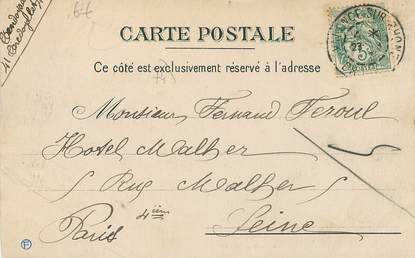 CARTE POSTALE
Ce côté est exclusivement réservé à l'adresse
Monsieur Fernand Feroul
Hotel Malher
5 Rue Malher 5
Paris 4ième Seine